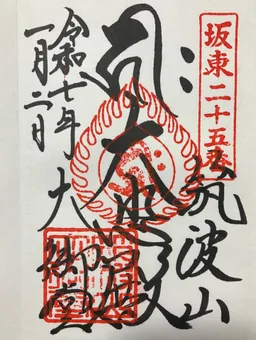 坂東二十五番
筑波山
大悲殿
大御堂
令和七年
一月二日